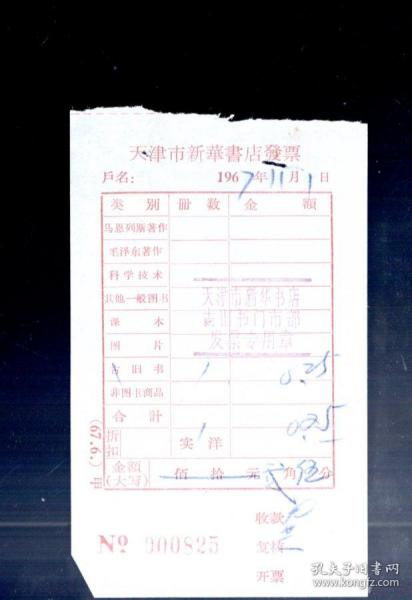 天津市新華書店發票
戶名： 1967年11月1日
类別 冊数 金額
马恩列斯著作
毛泽东著作
科学技术
其他一般图书
课本
图片
古旧书 1 0.25
非图书商品
合計 0.25
折扣 实洋 1
金額(大写) 佰拾元貳角伍分
天津市新华书店
古旧书门市部
发票专用章
(67.6.)甲
收款
№ 000825
复核
开票
孔夫子旧书网